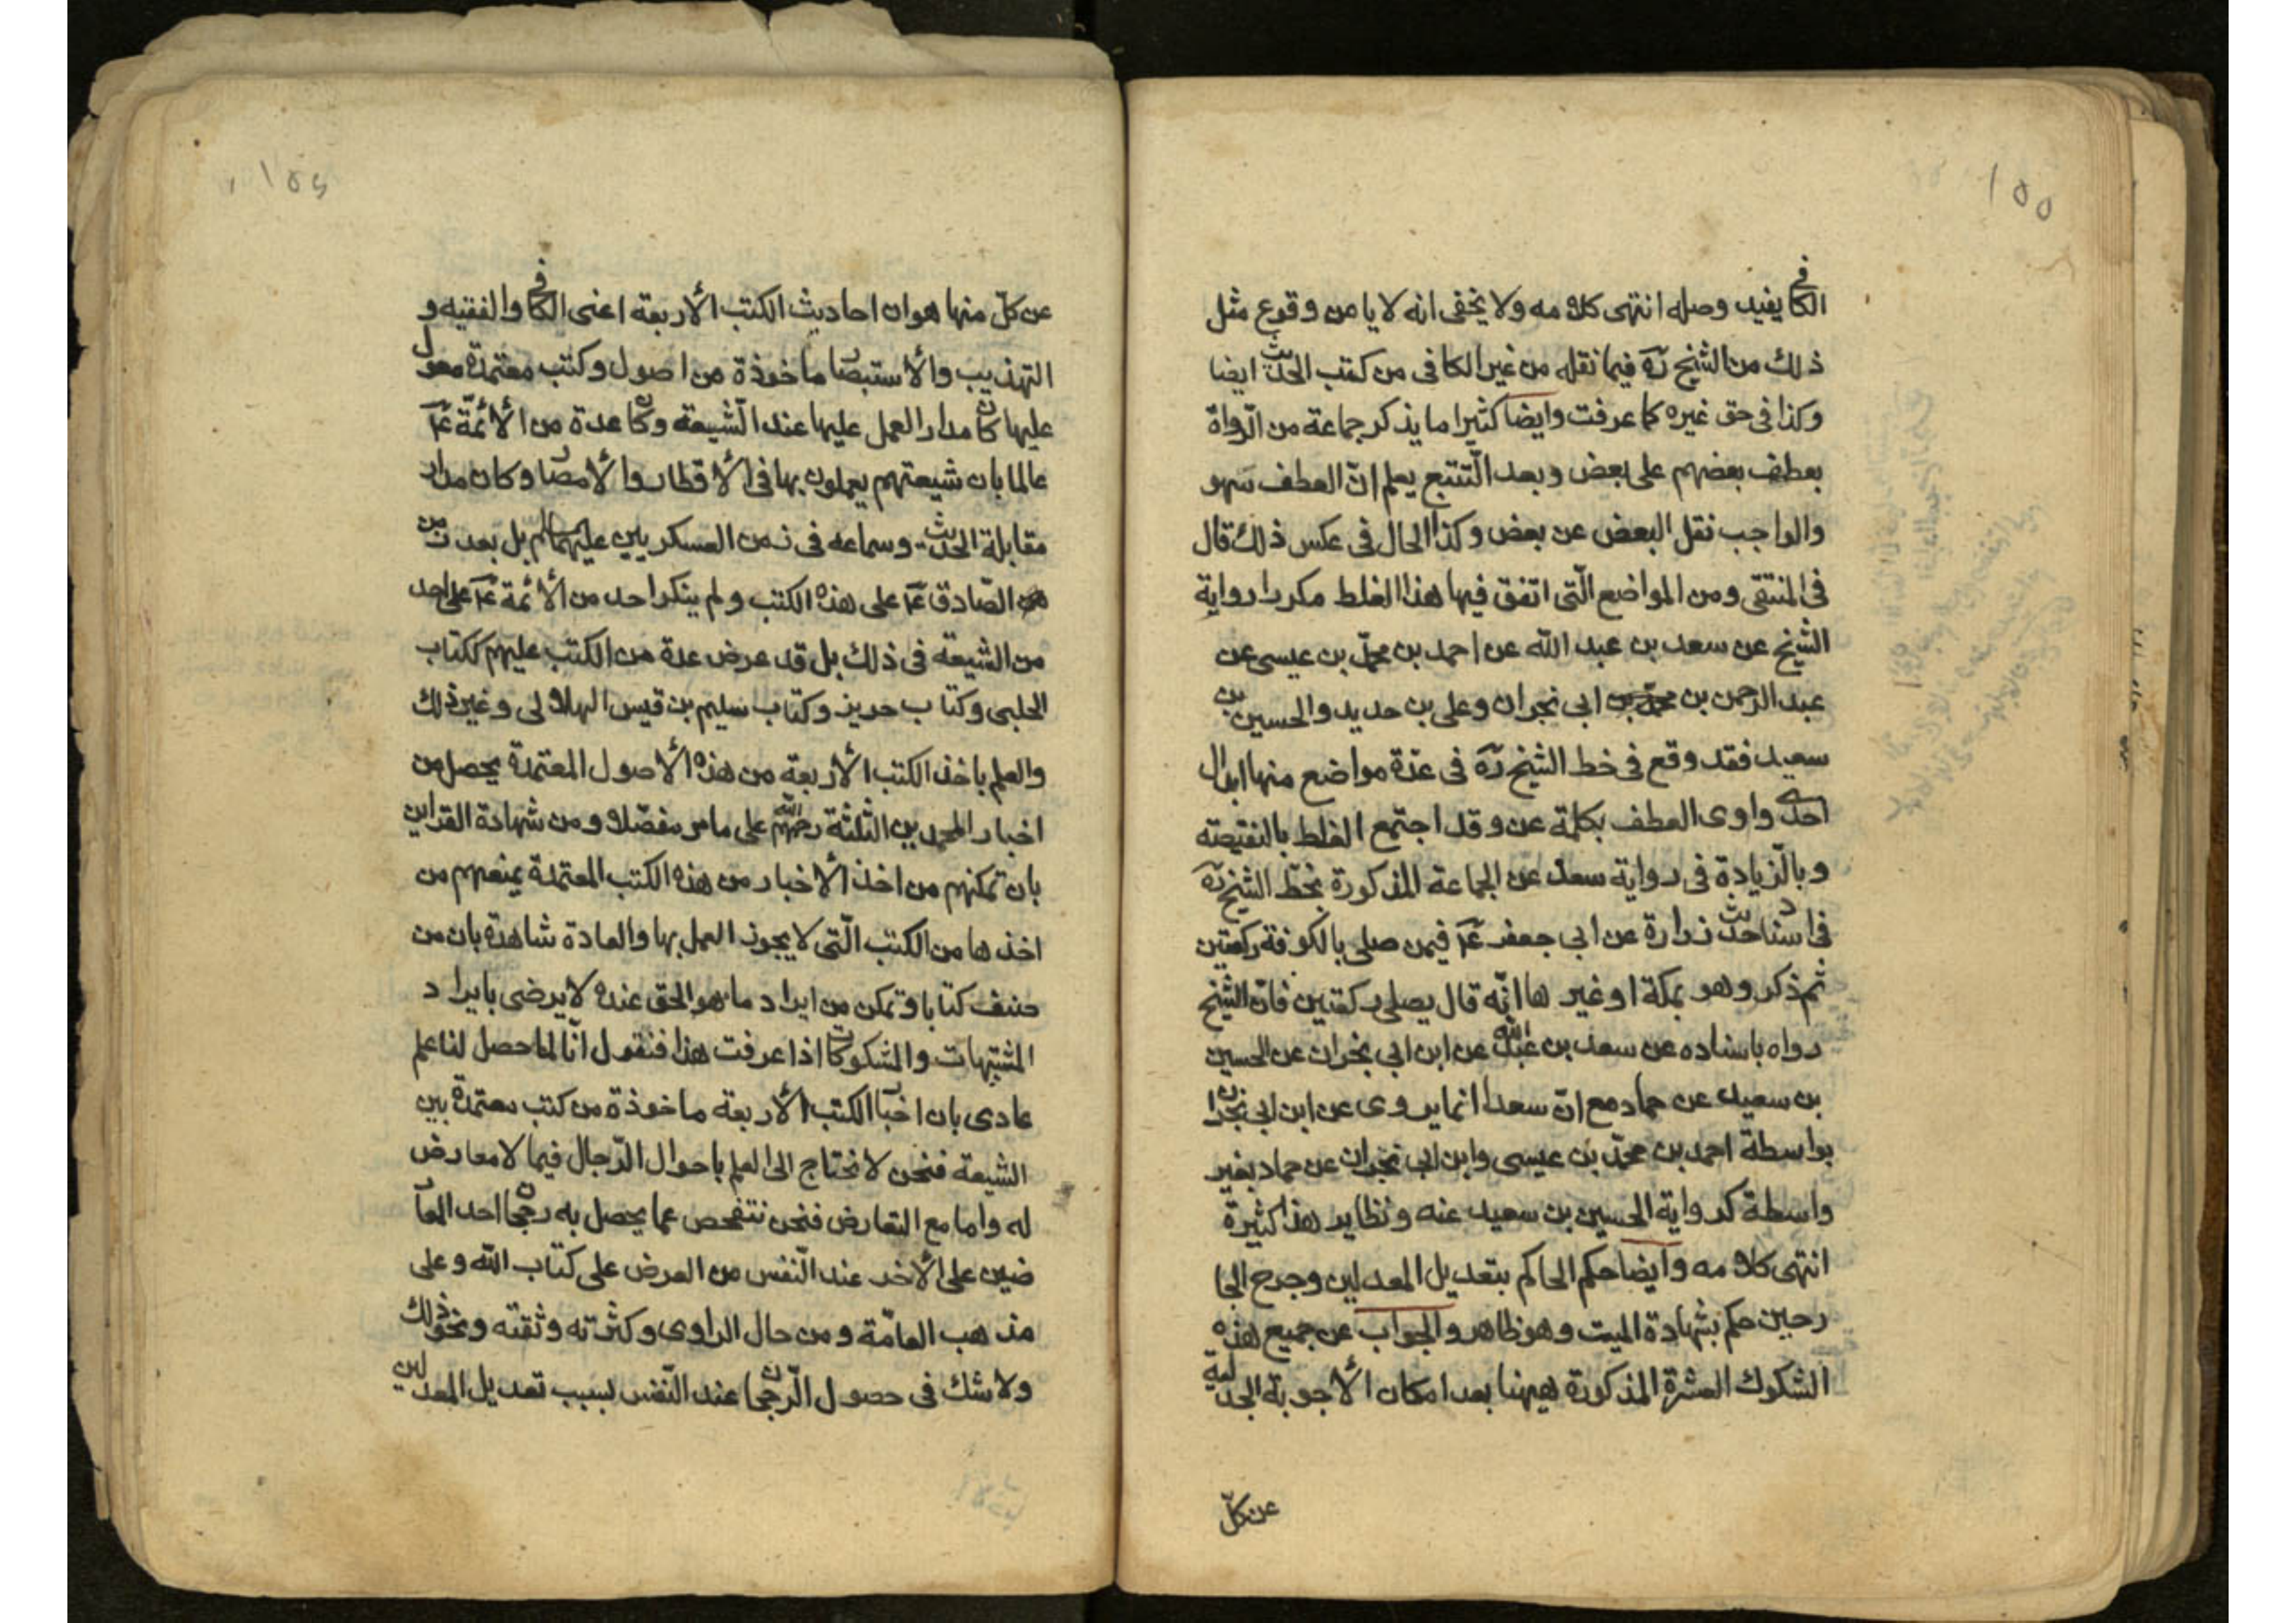 ١٥٥
الكافي يفيد وصله انتهى كلامه ولا يخفى انه لا يامن وقوع مثل
ذلك من الشيخ ره فيما نقله من غير الكافى من كتب الحديث ايضا
وكذا فى حق غيره كما عرفت وايضا كثيرا ما يذكر جماعة من الرّواة
بعطف بعضهم على بعض وبعد التّتبع يعلم انّ العطف سهو
والواجب نقل البعض عن بعض وكذا الحال فى عكس ذلك قال
فى المنتقى ومن المواضع الّتى اتفق فيها هذا الغلط مكررا رواية
الشيخ عن سعد بن عبد الله عن احمد بن محمّد بن عيسى عن
عبد الرحمن بن ابى نجران وعلى بن حديد والحسين بن
سعيد فقد وقع فى خط الشيخ ره فى عدة مواضع منها ابدال
احد واوى العطف بكلمة عن وقد اجتمع الغلط بالنقيصته
وبالزّيادة فى رواية سعد عن الجماعة المذكورة بخطّ الشيخ ره
فى اسناد حديث زرارة عن ابى جعفر ع فيمن صلى بالكوفة ركعتين
ثم ذكر وهو بمكة او غيرها انّه قال يصلى ركعتين فانّ الشيخ
رواه باسناده عن سعد بن عبد الله عن ابن ابى نجران عن الحسين
بن سعيد عن حماد مع انّ سعدا انما يروى عن ابن ابى نجران
بواسطة احمد بن محمّد بن عيسى وابن ابى نجران عن حماد بغير
واسطة كرواية الحسين بن سعيد عنه ونظاير هذا كثيرة
انتهى كلامه وايضا حكم الحاكم بتعديل المعدلين وجرح الجا
رحين حكم بشهادة الميت وهو ظاهر والجواب عن جميع هذه
الشكوك العشرة المذكورة ههنا بعد امكان الأجوبة الجدلية
عن كلّ
١٥٦
عن كلّ منها هو ان احاديث الكتب الأربعة اعنى الكافي والفقيه و
التهذيب والأستبصار ماخوذة من اصول وكتب معتمدة معول
عليها كان مدار العمل عليها عند الشّيعة وكان عدة من الأئمّة ع
عالما بان شيعتهم يعملون بها فى الأقطار والأمصار وكان مدار
مقابلة الحديث وسماعه فى زمن العسكريين عليهما السلام بل بعد زمن
الصّادق ع على هذه الكتب ولم ينكر احد من الأئمة ع على احد
من الشيعة فى ذلك بل قد عرض عدة من الكتب عليهم ككتاب
الحلبى وكتاب حريز وكتاب سليم بن قيس الهلالى وغير ذلك
والعلم باخذ الكتب الأربعة من هذه الأصول المعتمدة يحصل من
اخبار المحمدين الثلثة رحمهم الله على ما مر مفصّلا ومن شهادة القراين
بان تمكنهم من اخذ الأخبار من هذه الكتب المعتمدة يمنعهم من
اخذها من الكتب الّتى لا يجوز العمل بها والعادة شاهدة بان من
صنف كتابا وتمكن من ايراد ما هو الحق عنده لا يرضى بايراد
المشتبهات والمشكوكات اذا عرفت هذا فنقول انّا لما حصل لنا علم
عادى بان اخبار الكتب الأربعة ماخوذة من كتب معتمدة بين
الشيعة فنحن لا نحتاج الى العلم باحوال الرّجال فيما لا معارض
له واما مع التعارض فنحن نتفحص عما يحصل به رجحان احد المعا
ضين على الأخر عند النّفس من العرض على كتاب الله وعلى
مذهب العامّة ومن حال الراوى وكثرته وثقته ونحو ذلك
ولا شك فى حصول الرّجحان عند النّفس بسبب تعديل المعدلين